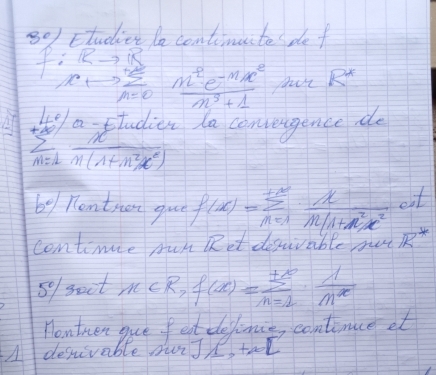 3°/ Etudier la continuité de f
f : ℝ → ℝ
x ↦ +∞ ∑ n=0 n² e^(-nx²) / (n³ + 1) sur ℝ*
4°/ a - Etudier la convergence de
+∞ ∑ n=1 x / n(1+n²x²)
b°/ Montrer que f(x) = +∞ ∑ n=1 x / n(1+n²x²) est
continue sur ℝ et dérivable sur ℝ*
5°/ soit x ∈ ℝ, f(x) = +∞ ∑ n=1 1 / n^x
Montrer que f est définie, continue et
dérivable sur ]1, +∞[